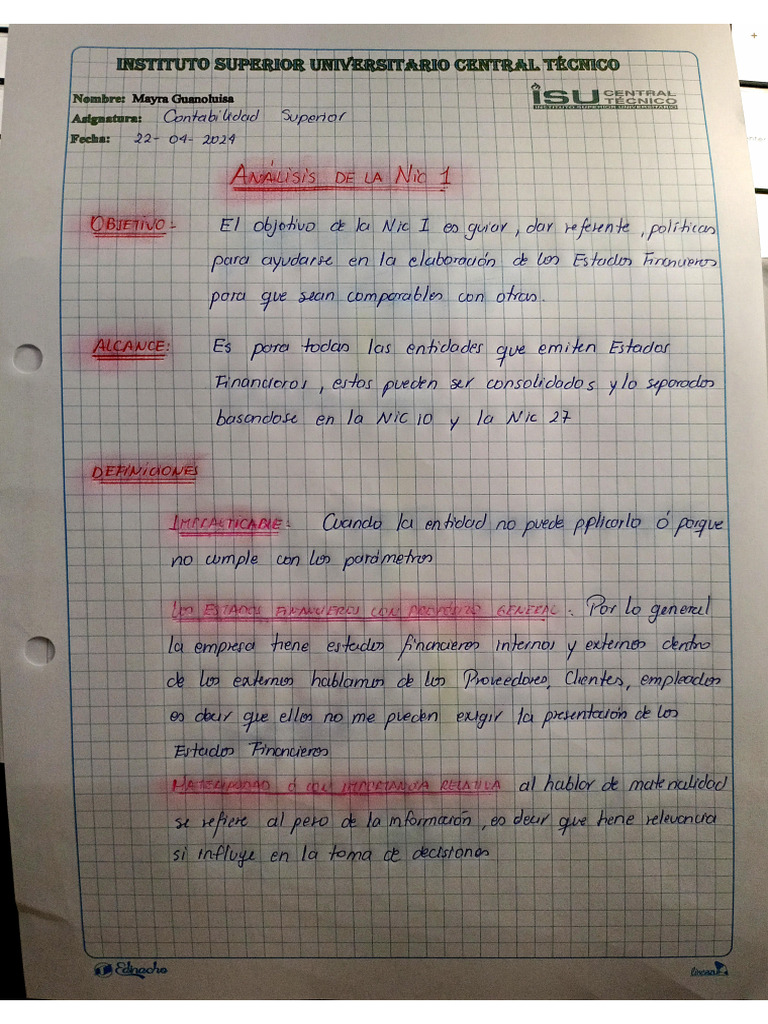 INSTITUTO SUPERIOR UNIVERSITARIO CENTRAL TÉCNICO
Nombre: Mayra Guanoluisa
ISU CENTRAL TÉCNICO
INSTITUTO SUPERIOR UNIVERSITARIO
Asignatura: Contabilidad Superior
Fecha: 22-04-2024
ANÁLISIS DE LA NIC 1
OBJETIVO: El objetivo de la NIC I es guiar, dar referente, políticas
para ayudarse en la elaboración de los Estados Financieros
para que sean comparables con otras.
ALCANCE: Es para todas las entidades que emiten Estados
Financieros, estos pueden ser consolidados y lo separados
basandose en la NIC 10 y la NIC 27
DEFINICIONES
IMPRACTICABLE: Cuando la entidad no puede pplicarlo ó porque
no cumple con los parámetros
LOS ESTADOS FINANCIEROS CON PROPÓSITO GENERAL: Por lo general
la empresa tiene estados financieros internos y externos dentro
de los externos hablamos de los Proveedores, Clientes, empleados
es decir que ellos no me pueden exigir la presentación de los
Estados Financieros
MATERIALIDAD O CON IMPORTANCIA RELATIVA al hablar de materialidad
se refiere al peso de la información, es decir que tiene relevancia
si influye en la toma de decisiones
Edinacho